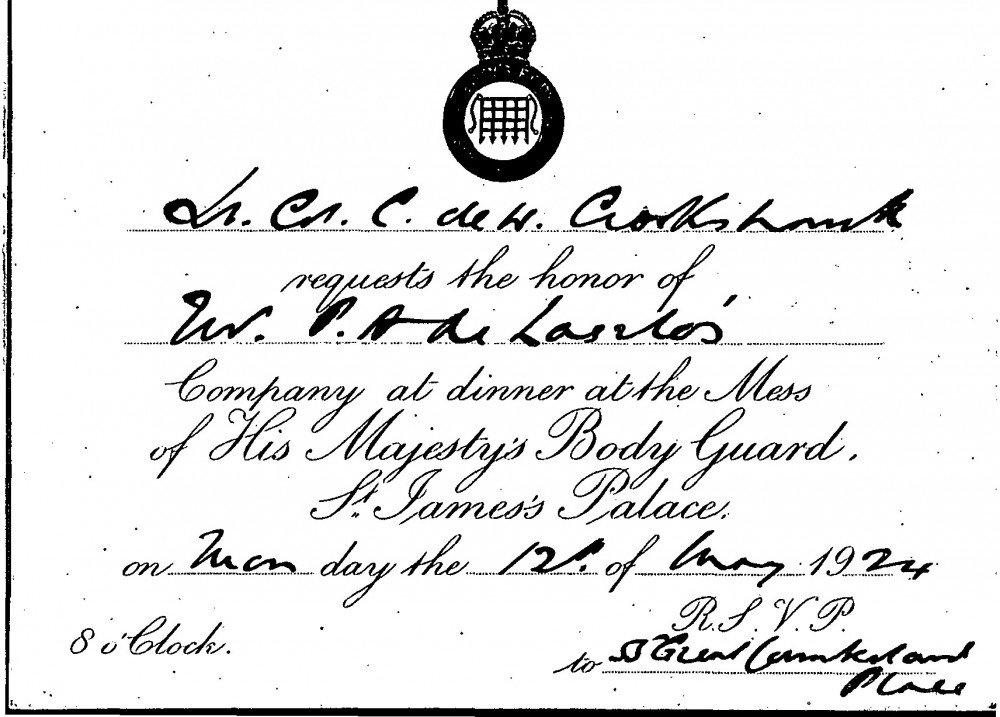 Lt. Col. C. de W. Crookshank
requests the honor of
Mr. P. A de László's
Company at dinner at the Mess
of His Majesty's Body Guard,
St. James's Palace,
on Mon day the 12th of May 1924
8 o'Clock.
R.S.V.P.
to Great Cumberland
Place